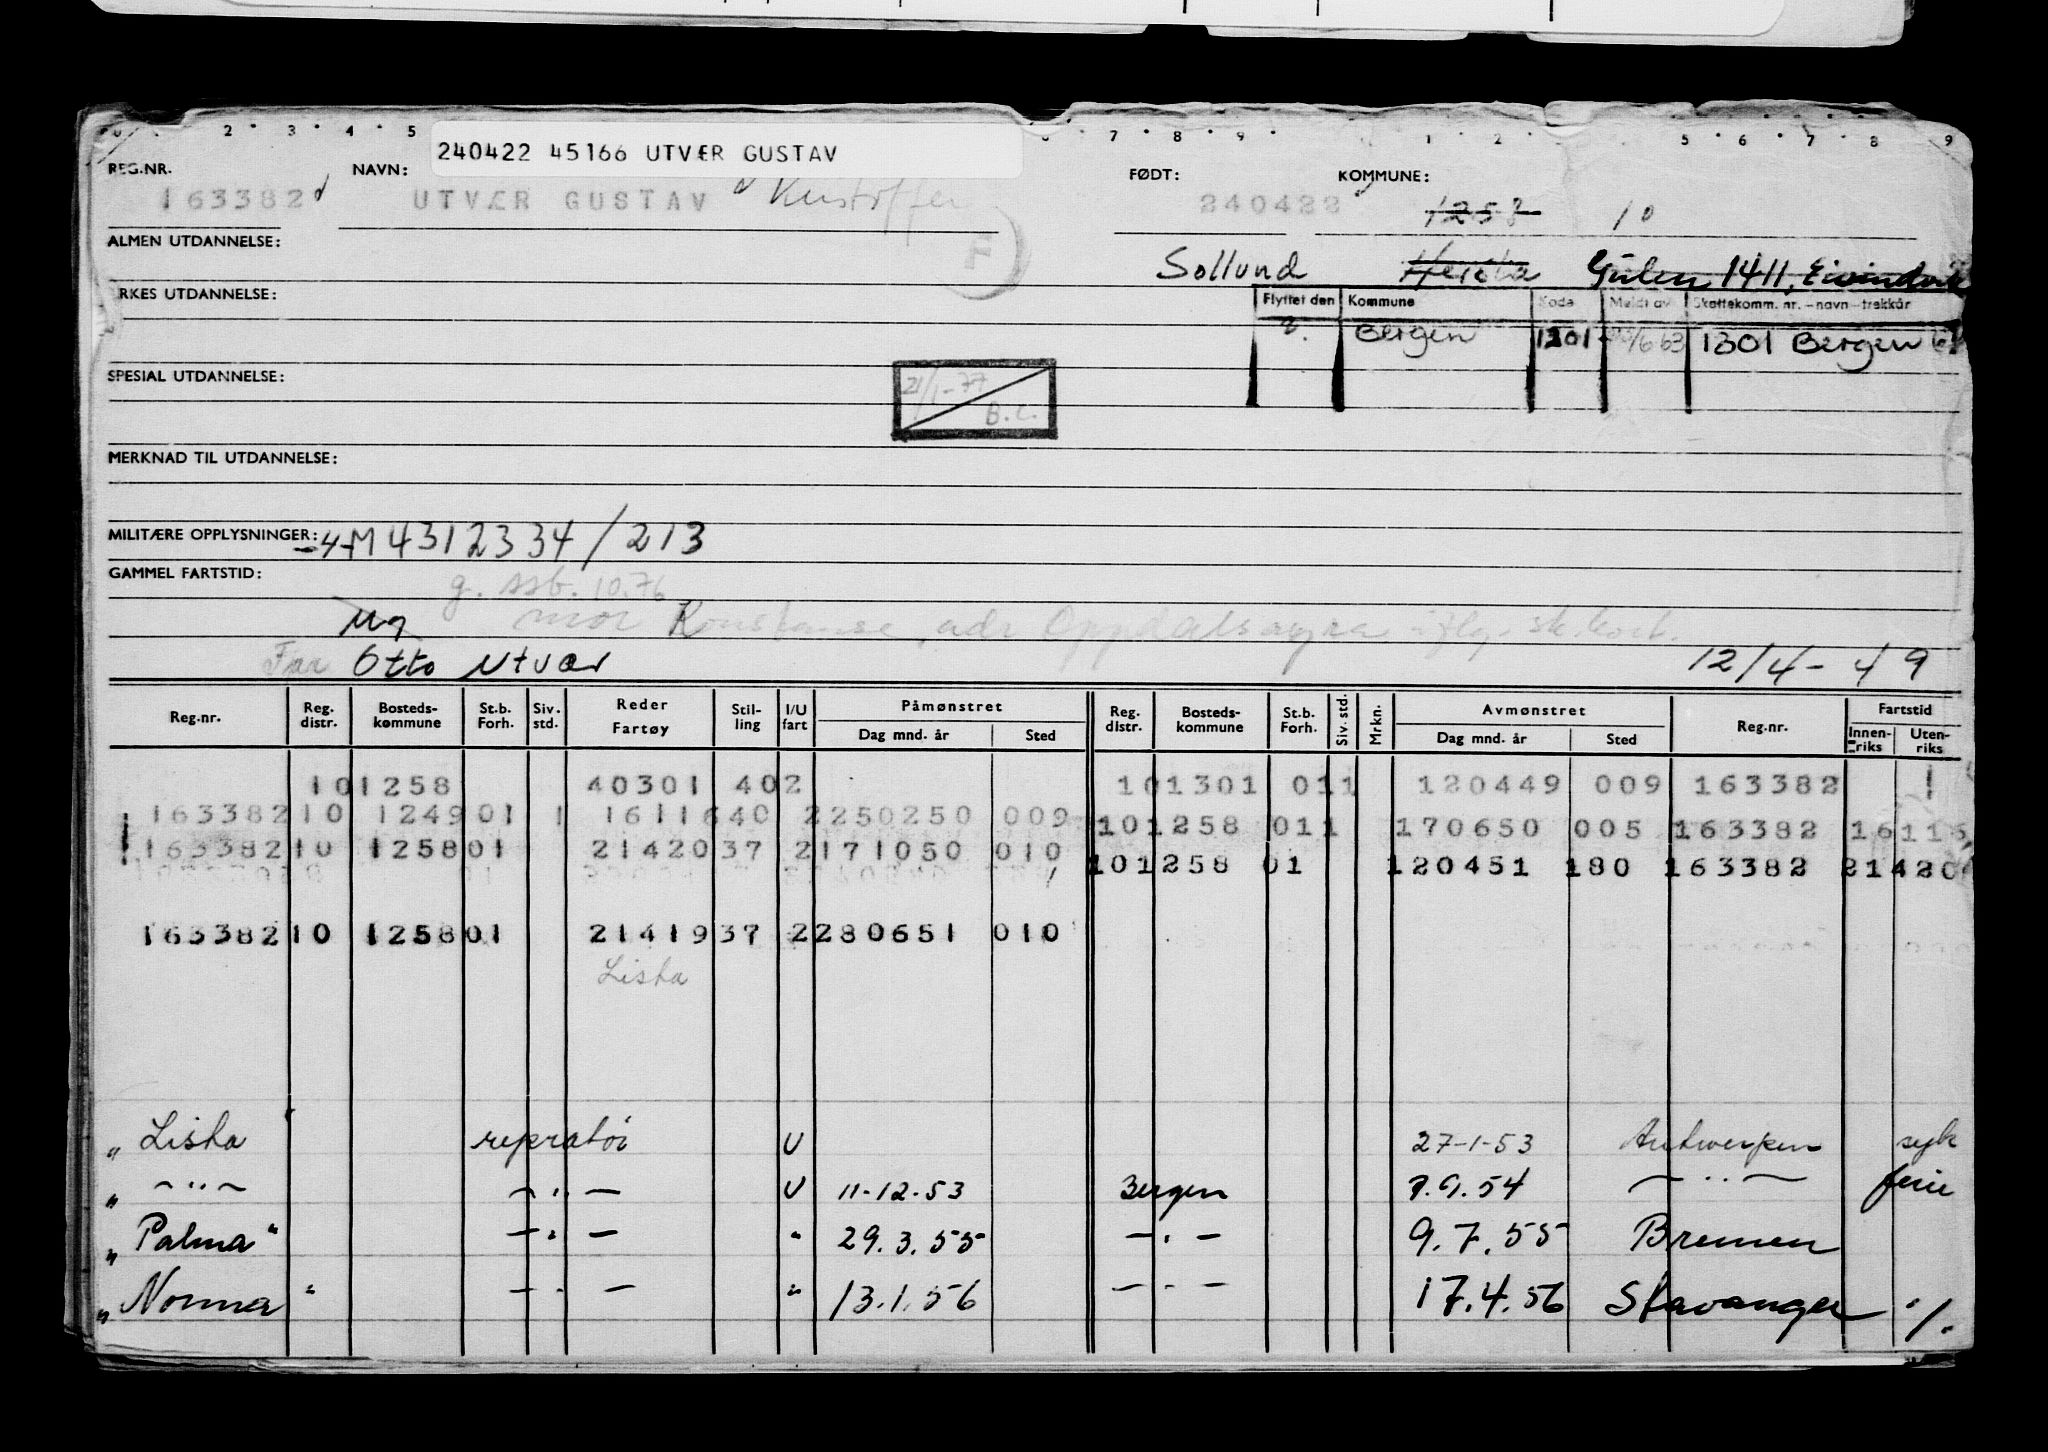 240422 45166 UTVÆR GUSTAV
REG.NR. NAVN: FØDT: KOMMUNE:
163382 UTVÆR GUSTAV Kristoffer 240422 1258 10
ALMEN UTDANNELSE:
Sollund Herdla Gulen 1411, Eivindvik
YRKES UTDANNELSE:
Flyttet den Kommune Kode Meldt av Skattekomm. nr. – navn – trekkår
?. Bergen 1301 /6 63 1301 Bergen
SPESIAL UTDANNELSE:
21/1-77
B.C.
F
MERKNAD TIL UTDANNELSE:
MILITÆRE OPPLYSNINGER: -4-M4312334/213
GAMMEL FARTSTID:
g. ssb. 10.76
Ug mor Konstanse, adr Oppdalsøyra
Far Otto Utvær 12/4-49
Reg.nr. Reg. distr. Bosteds-kommune St.b. Forh. Siv. std. Reder Fartøy Stil-ling I/U fart Påmønstret Dag mnd. år Sted Reg. distr. Bosteds-kommune St.b. Forh. Siv. std. Mrkn. Avmønstret Dag mnd. år Sted Reg.nr. Fartstid Innen-riks Uten-riks
101258 40301 402 101301 011 120449 009 163382 1
163382 10 1249 01 1 1611640 2250250 009 101258 011 170650 005 163382 16116
163382 10 1258 01 2142037 2171050 010 101258 01 120451 180 163382 21420
163382 10 1258 01 2141937 2280651 010
Lista
„ Lista " repratør U 27-1-53 Antwerpen syk
„ – " – – " – U 11-12-53 Bergen 7.9.54 – " – ferie
„ Palma " – " – " 29.3.55 – " – 9.7.55 Bremen
„ Norma " – " – " 13.1.56 – " – 17.4.56 Stavanger %.